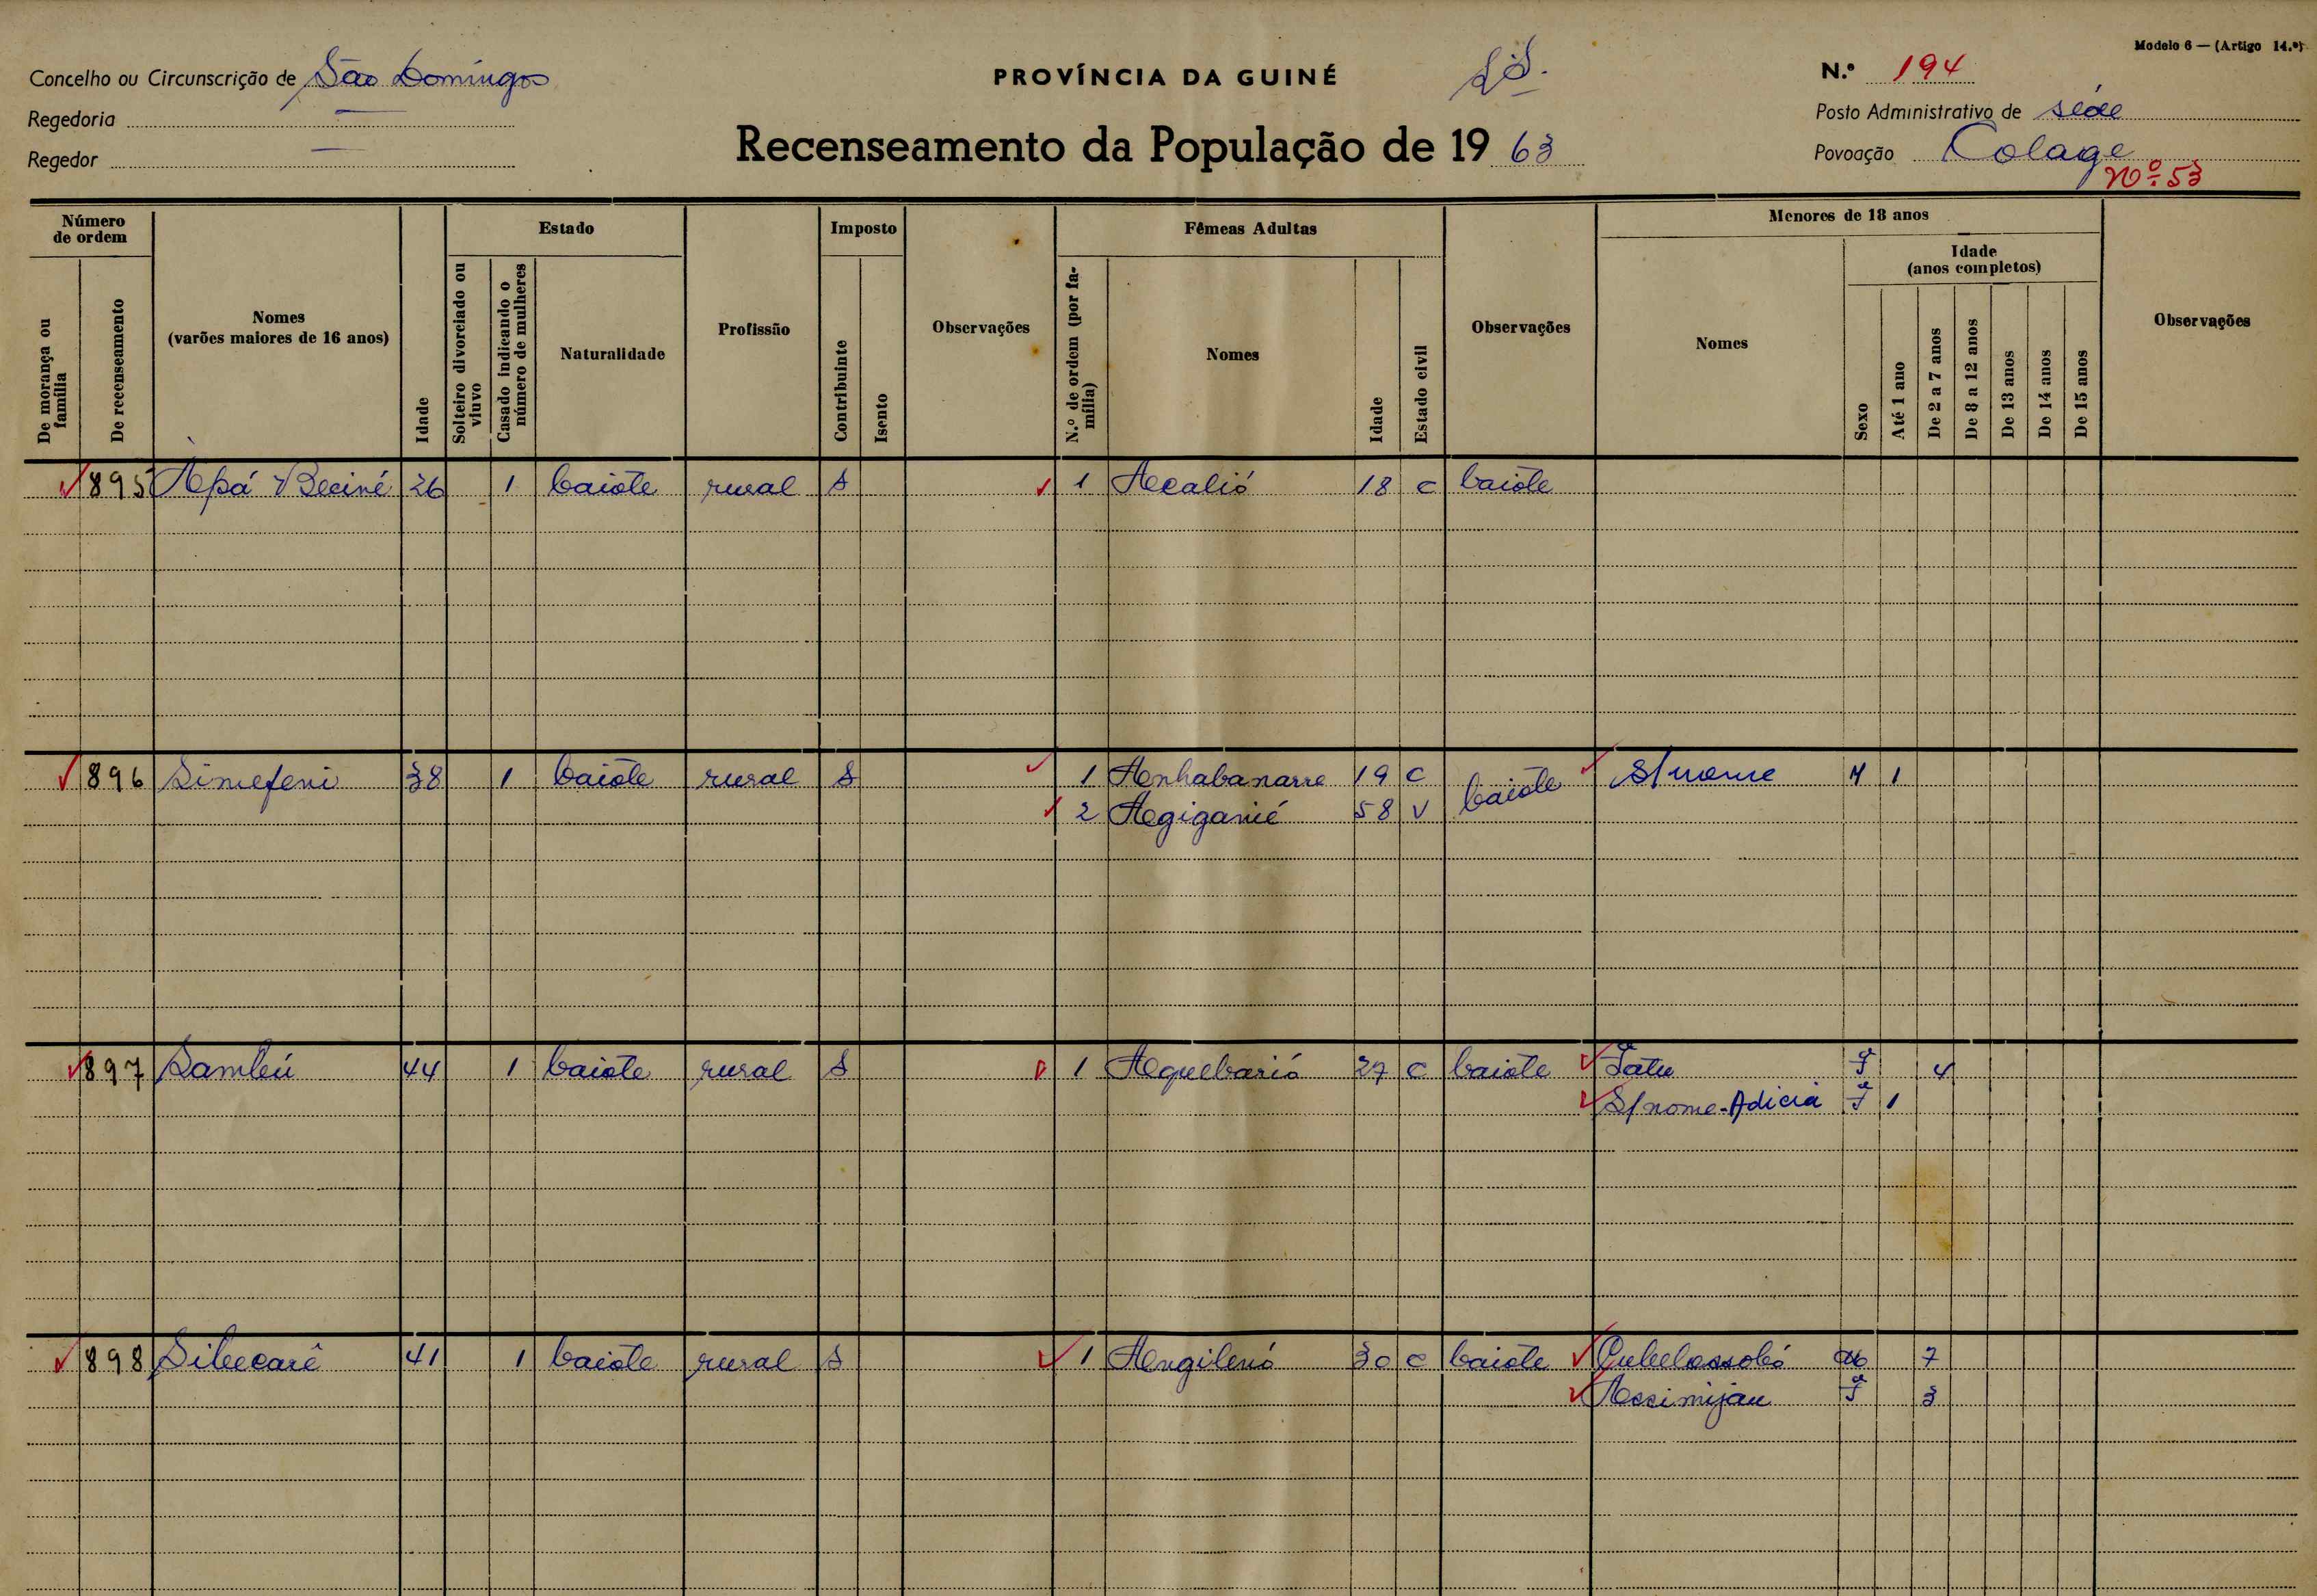 Modelo 6 — (Artigo 14.º)
Concelho ou Circunscrição de São Domingos
PROVÍNCIA DA GUINÉ
N.º 194
Regedoria —
Posto Administrativo de séde
Regedor —
Recenseamento da População de 1963
Povoação Colage
Nº 53
Número de ordem
De morança ou família
De recenseamento
Nomes
(varões maiores de 16 anos)
Idade
Estado
Solteiro divorciado ou viuvo
Casado indicando o número de mulheres
Naturalidade
Profissão
Imposto
Contribuinte
Isento
Observações
Fêmeas Adultas
N.º de ordem (por família)
Nomes
Idade
Estado civil
Observações
Menores de 18 anos
Nomes
Sexo
Idade
(anos completos)
Até 1 ano
De 2 a 7 anos
De 8 a 12 anos
De 13 anos
De 14 anos
De 15 anos
Observações
895 26 1 baiote rural S 1 18 c baiote
896 Simefeni 38 1 baiote rural S 1 Anhabanarre 19 c baiote S/nome M 1
2 Agiganié 58 v
897 Sambú 44 1 baiote rural S 1 Aquebarió 27 c baiote Tatu F 4
S/nome-Adicia F 1
898 41 1 baiote rural S 1 30 c baiote 7
Assimijau F 3